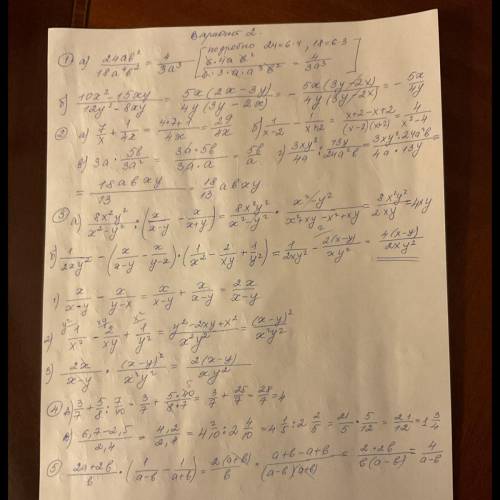 Вариант 2.
① а) 24ab²/18a⁴b² = 4/3a³ [подробно 24=6·4, 18=6·3 6·4 a b²/6·3·a·a³ b² = 4/3a³]
б) 10x²-15xy/12y²-8xy = 5x(2x-3y)/4y(3y-2x) = - 5x(3y-2x)/4y(3y-2x) = - 5x/4y
② а) 7/x + 1/4x = 4·7+1/4x = 29/4x б) 1/x-2 - 1/x+2 = x+2-x+2/(x-2)(x+2) = 4/x²-4
в) 3a · 5b/3a² = 3a·5b/3a·a = 5b/a
= 18abxy/13 = 18/13 abxy
③ а) 8x²y²/x²-y² : (x/x-y - x/x+y) = 8x²y²/x²-y² · x²-y²/x²+xy-x²+xy = 8x²y²/2xy = 4xy
б) 1/2xy² - (x/x-y - x/y-x)·(1/x² - 2/xy + 1/y²) = 1/2xy² - 2(x-y)/xy² = 4(x-y)/2xy²
1) x/x-y - x/y-x = x/x-y + x/x-y = 2x/x-y
2) 1/x² - 2/xy + 1/y² = y²-2xy+x²/x²y² = (x-y)²/x²y²
3) 2x/x-y · (x-y)²/x²y² = 2(x-y)/xy²
④ 3/7 + 5/8 : 7/10 = 3/7 + 5·10/8·7 = 3/7 + 25/7 = 28/7 = 4
в) 6,7-2,5/2,4 = 4,2/2,4 = 4 2/10 : 2 4/10 = 4 1/5 : 2 2/5 = 21/5 · 5/12 = 21/12 = 1 3/4
⑤ 2a+2b/b · (1/a-b - 1/a+b) = 2(a+b)/b · a+b-a+b/(a-b)(a+b) = 2·2b/b(a-b) = 4/a-b